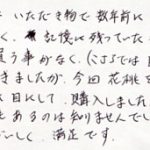 いただき物で数年前に
く、記憶に残っていた
買う事がなく、(ここでは
きましたが、今回花桃を
目にして、購入しました
もあるのは知りませんでし
しく、満足です。